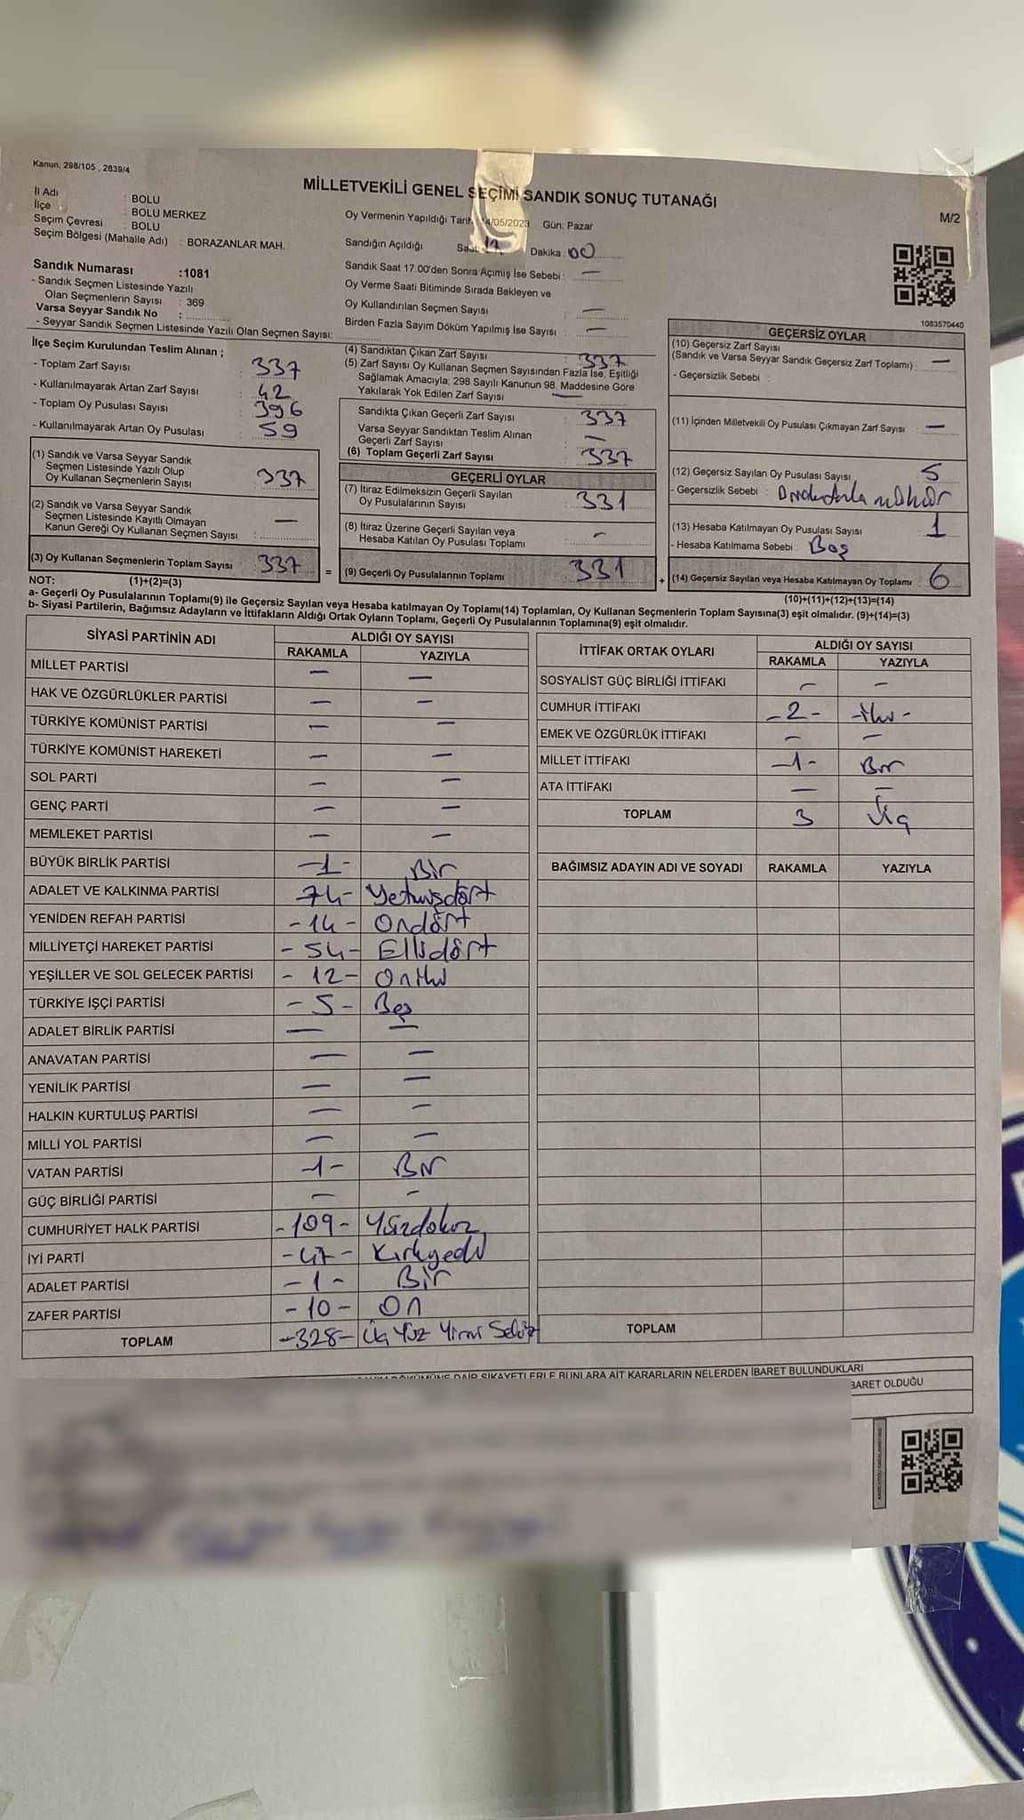 Kanun, 298/105 , 2839/4
MİLLETVEKİLİ GENEL SEÇİMİ SANDIK SONUÇ TUTANAĞI
M/2
İl Adı : BOLU
İlçe : BOLU MERKEZ
Seçim Çevresi : BOLU
Seçim Bölgesi (Mahalle Adı) : BORAZANLAR MAH.
Sandık Numarası :1081
- Sandık Seçmen Listesinde Yazılı
Olan Seçmenlerin Sayısı : 369
Varsa Seyyar Sandık No :
- Seyyar Sandık Seçmen Listesinde Yazılı Olan Seçmen Sayısı:
Oy Vermenin Yapıldığı /05/2023 Gün: Pazar
Sandığın Açıldığı 17 Dakika : 00
Sandık Saat 17.00'den Sonra Açımış İse Sebebi : —
Oy Verme Saati Bitiminde Sırada Bekleyen ve
Oy Kullandırılan Seçmen Sayısı —
Birden Fazla Sayım Döküm Yapılmış İse Sayısı —
1083570440
İlçe Seçim Kurulundan Teslim Alınan ;
- Toplam Zarf Sayısı : 337
- Kullanılmayarak Artan Zarf Sayısı : 42
- Toplam Oy Pusulası Sayısı : 396
- Kullanılmayarak Artan Oy Pusulası : 59
(1) Sandık ve Varsa Seyyar Sandık
Seçmen Listesinde Yazılı Olup
Oy Kullanan Seçmenlerin Sayısı : 337
(2) Sandık ve Varsa Seyyar Sandık
Seçmen Listesinde Kayıtlı Olmayan
Kanun Gereği Oy Kullanan Seçmen Sayısı : —
(3) Oy Kullanan Seçmenlerin Toplam Sayısı 337
(4) Sandıktan Çıkan Zarf Sayısı : 337
(5) Zarf Sayısı Oy Kullanan Seçmen Sayısından Fazla İse, Eşitliği
Sağlamak Amacıyla; 298 Sayılı Kanunun 98. Maddesine Göre
Yakılarak Yok Edilen Zarf Sayısı —
Sandıkta Çıkan Geçerli Zarf Sayısı : 337
Varsa Seyyar Sandıktan Teslim Alınan
Geçerli Zarf Sayısı : —
(6) Toplam Geçerli Zarf Sayısı : 337
GEÇERLİ OYLAR
(7) İtiraz Edilmeksizin Geçerli Sayılan
Oy Pusulalarının Sayısı : 331
(8) İtiraz Üzerine Geçerli Sayılan veya
Hesaba Katılan Oy Pusulası Toplamı : -
= (9) Geçerli Oy Pusulalarının Toplamı 331
GEÇERSİZ OYLAR
(10) Geçersiz Zarf Sayısı
(Sandık ve Varsa Seyyar Sandık Geçersiz Zarf Toplamı) : —
- Geçersizlik Sebebi :
(11) İçinden Milletvekili Oy Pusulası Çıkmayan Zarf Sayısı —
(12) Geçersiz Sayılan Oy Pusulası Sayısı 5
- Geçersizlik Sebebi : mühür
(13) Hesaba Katılmayan Oy Pusulası Sayısı 1
- Hesaba Katılmama Sebebi : Boş
+ (14) Geçersiz Sayılan veya Hesaba Katılmayan Oy Toplamı 6
NOT: (1)+(2)=(3)
(10)+(11)+(12)+(13)=(14)
a- Geçerli Oy Pusulalarının Toplamı(9) ile Geçersiz Sayılan veya Hesaba katılmayan Oy Toplamı(14) Toplamları, Oy Kullanan Seçmenlerin Toplam Sayısına(3) eşit olmalıdır. (9)+(14)=(3)
b- Siyasi Partilerin, Bağımsız Adayların ve İttifakların Aldığı Ortak Oyların Toplamı, Geçerli Oy Pusulalarının Toplamına(9) eşit olmalıdır.
SİYASİ PARTİNİN ADI ALDIĞI OY SAYISI
RAKAMLA YAZIYLA
MİLLET PARTİSİ — —
HAK VE ÖZGÜRLÜKLER PARTİSİ — —
TÜRKİYE KOMÜNİST PARTİSİ — —
TÜRKİYE KOMÜNİST HAREKETİ — —
SOL PARTİ — —
GENÇ PARTİ — —
MEMLEKET PARTİSİ — —
BÜYÜK BİRLİK PARTİSİ -1- Bir
ADALET VE KALKINMA PARTİSİ 74- Yetmişdört
YENİDEN REFAH PARTİSİ -14- Ondört
MİLLİYETÇİ HAREKET PARTİSİ -54- Ellidört
YEŞİLLER VE SOL GELECEK PARTİSİ -12- Oniki
TÜRKİYE İŞÇİ PARTİSİ -5- Beş
ADALET BİRLİK PARTİSİ — —
ANAVATAN PARTİSİ — —
YENİLİK PARTİSİ — —
HALKIN KURTULUŞ PARTİSİ — —
MİLLİ YOL PARTİSİ — —
VATAN PARTİSİ -1- Bir
GÜÇ BİRLİĞİ PARTİSİ — -
CUMHURİYET HALK PARTİSİ -109- Yüzdokuz
İYİ PARTİ -47- Kırkyedi
ADALET PARTİSİ -1- Bir
ZAFER PARTİSİ -10- On
TOPLAM -328- Üç Yüz Yirmi Sekiz
İTTİFAK ORTAK OYLARI ALDIĞI OY SAYISI
RAKAMLA YAZIYLA
SOSYALİST GÜÇ BİRLİĞİ İTTİFAKI - -
CUMHUR İTTİFAKI -2- -iki-
EMEK VE ÖZGÜRLÜK İTTİFAKI - -
MİLLET İTTİFAKI -1- Bir
ATA İTTİFAKI — —
TOPLAM 3 Üç
BAĞIMSIZ ADAYIN ADI VE SOYADI RAKAMLA YAZIYLA
TOPLAM
DAİR ŞİKAYETLERLE BUNLARA AİT KARARLARIN NELERDEN İBARET BULUNDUKLARI
BARET OLDUĞU